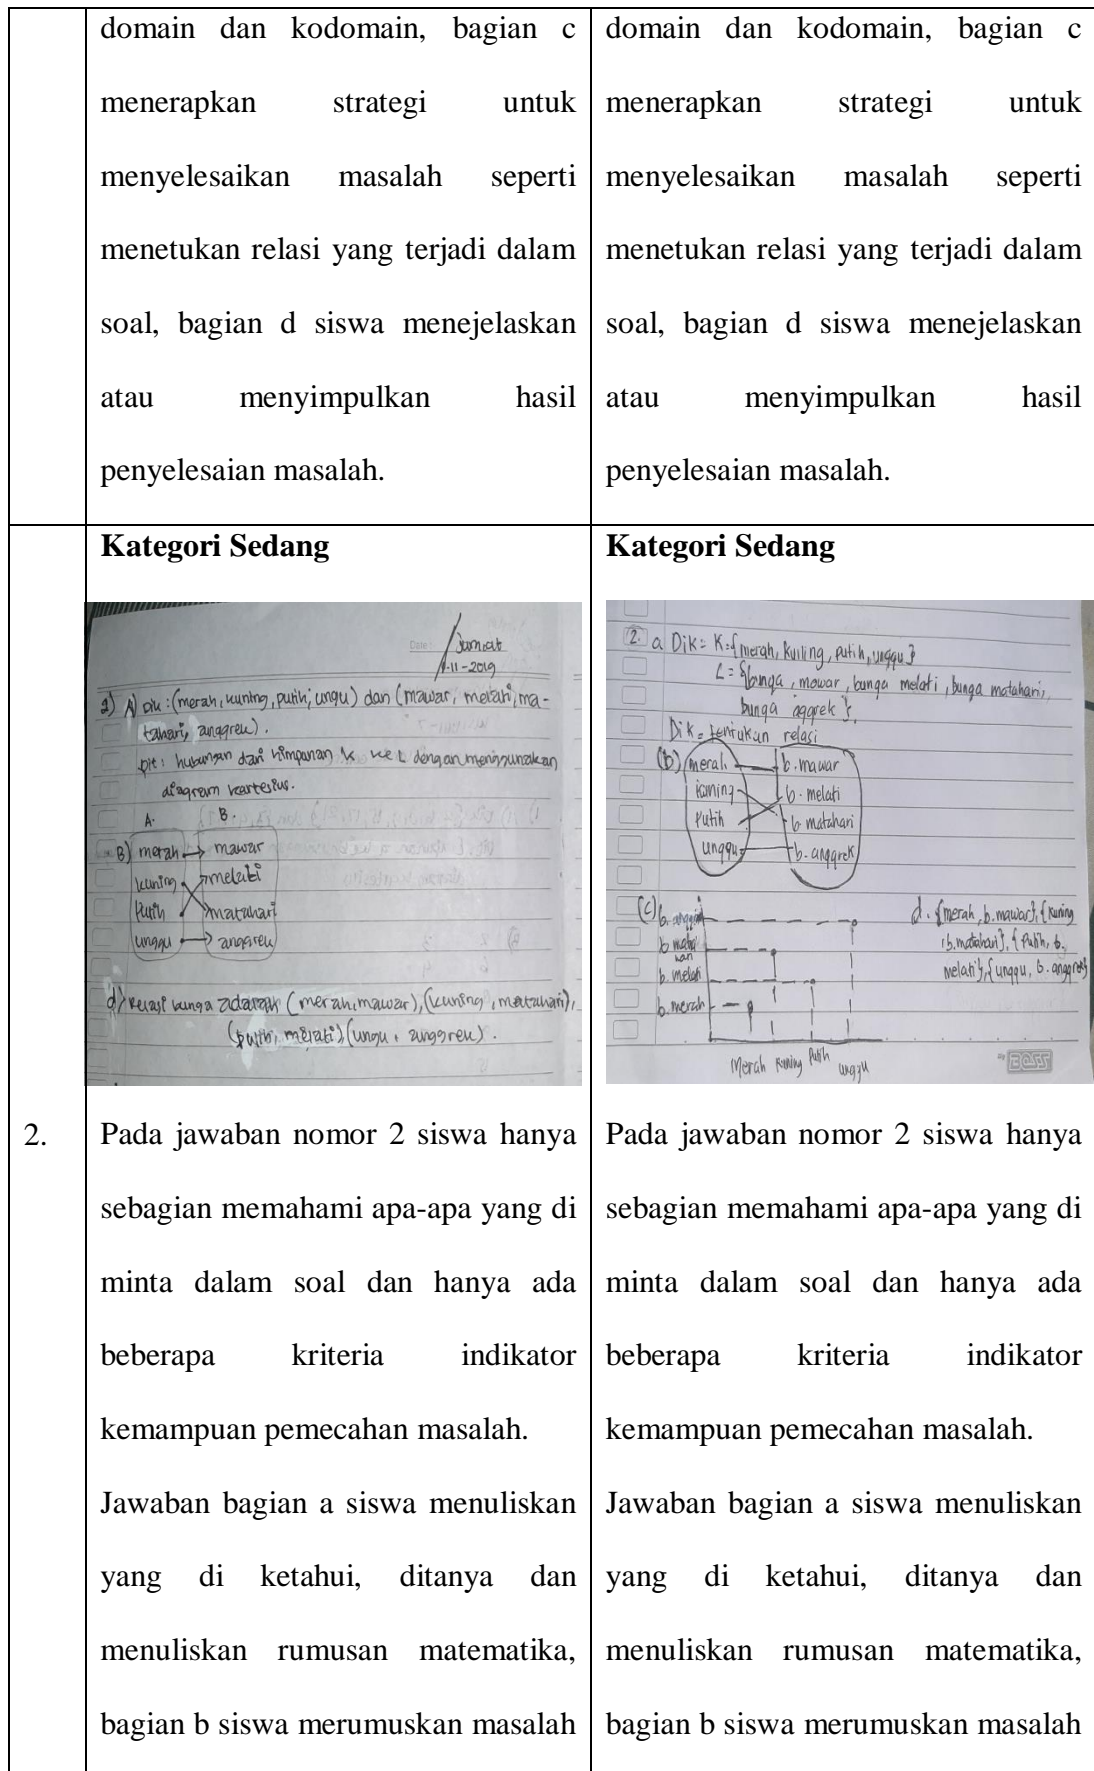 domain dan kodomain, bagian c
menerapkan strategi untuk
menyelesaikan masalah seperti
menetukan relasi yang terjadi dalam
soal, bagian d siswa menejelaskan
atau menyimpulkan hasil
penyelesaian masalah.
domain dan kodomain, bagian c
menerapkan strategi untuk
menyelesaikan masalah seperti
menetukan relasi yang terjadi dalam
soal, bagian d siswa menejelaskan
atau menyimpulkan hasil
penyelesaian masalah.
2.
Kategori Sedang
Date: Jumat
-11-2019
2) A) Dik : (merah, kuning, putih, ungu) dan (mawar, melati, ma-
tahari, anggrek).
Dit : hubungan dari himpunan k ke L dengan menggunakan
diagram kartesius.
A. B.
B) merah mawar
kuning melati
Putih matahari
ungu anggrek
d) relasi bunga adalah (merah, mawar), (kuning, matahari),
(putih, melati), (ungu, anggrek).
Pada jawaban nomor 2 siswa hanya
sebagian memahami apa-apa yang di
minta dalam soal dan hanya ada
beberapa kriteria indikator
kemampuan pemecahan masalah.
Jawaban bagian a siswa menuliskan
yang di ketahui, ditanya dan
menuliskan rumusan matematika,
bagian b siswa merumuskan masalah
Kategori Sedang
2. a Dik = K = {merah, kuning, putih, unggu}
L = {bunga, mawar, bunga melati, bunga matahari,
bunga aggrek}.
Dik = tentukan relasi
(b) merah b. mawar
kuning b. melati
Putih b. matahari
unggu b. anggrek
(c) b. anggrek
b matahari
b. melati
b. merah
Merah Kuning Putih unggu
d. {merah, b. mawar}, {kuning
, b. matahari}, {Putih, b.
melati}, {unggu, b. anggrek}
BOSS
Pada jawaban nomor 2 siswa hanya
sebagian memahami apa-apa yang di
minta dalam soal dan hanya ada
beberapa kriteria indikator
kemampuan pemecahan masalah.
Jawaban bagian a siswa menuliskan
yang di ketahui, ditanya dan
menuliskan rumusan matematika,
bagian b siswa merumuskan masalah